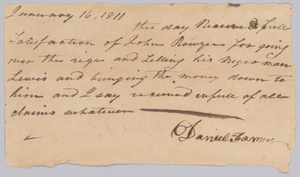 January 16, 1811
this day Received full
Satisfaction of John Rouzee for going
over the rige and Selling his Negro man
Lewis and bringing the money down to
him and I say received in full of all
claims whatever
Daniel Farmer